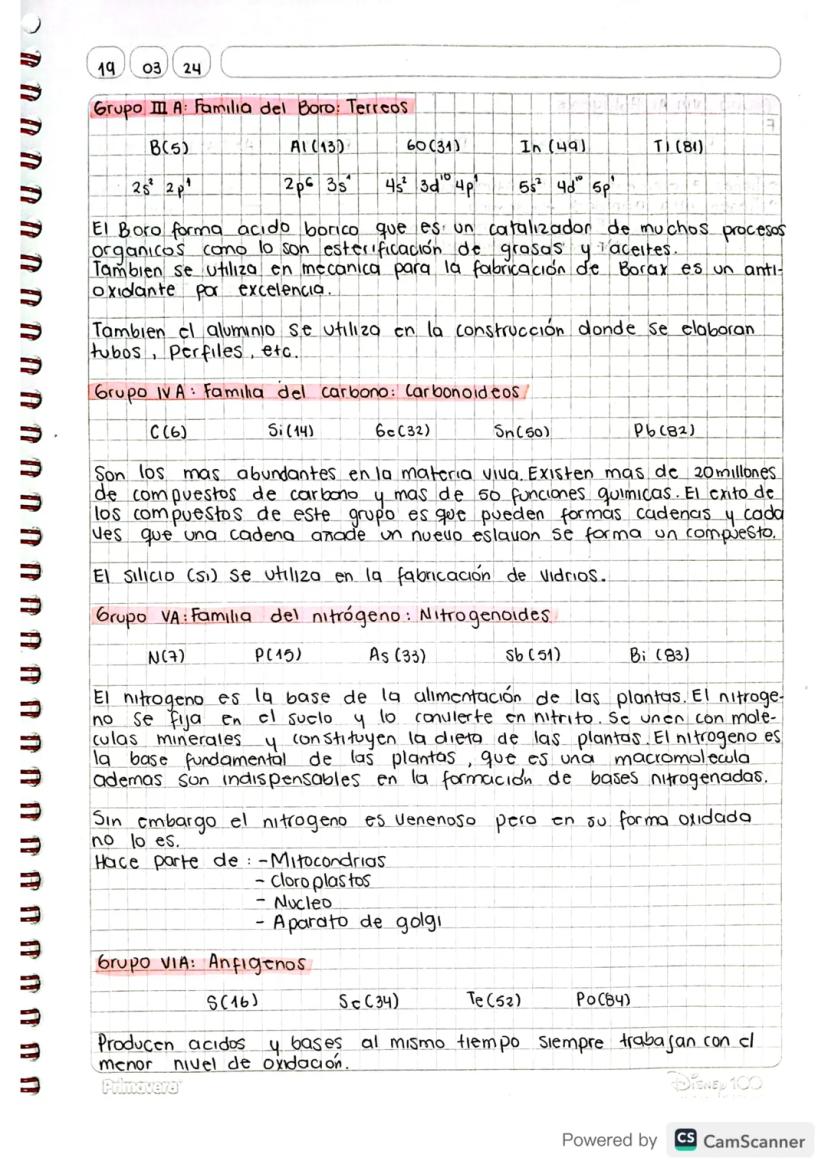 19 03 24
Grupo III A: Familia del Boro: Terreos
B(5) Al (13) GO(31) In (49) Tl (81)
2s² 2p¹ 2p⁶ 3s¹ 4s² 3d¹⁰ 4p¹ 5s² 4d¹⁰ 5p¹
El Boro forma acido borico que es un catalizador de muchos procesos
organicos como lo son esterificación de grasas y aceites.
Tambien se utiliza en mecanica para la fabricación de Borax es un anti-
oxidante por excelencia.
Tambien el aluminio se utiliza en la construcción donde se elaboran
tubos, perfiles, etc.
Grupo IV A: Familia del carbono: Carbonoideos
C(6) Si(14) Ge(32) Sn(50) Pb(82)
Son los mas abundantes en la materia viva. Existen mas de 20 millones
de compuestos de carbono y mas de 50 funciones quimicas. El exito de
los compuestos de este grupo es que pueden formas cadenas y cada
ves que una cadena añade un nuevo eslavon se forma un compuesto.
El silicio (si) se utiliza en la fabricación de vidrios.
Grupo VA: Familia del nitrógeno: Nitrogenoides
N(7) P(15) As (33) Sb (51) Bi (83)
El nitrogeno es la base de la alimentación de las plantas. El nitroge-
no se fija en el suelo y lo convierte en nitrito. Se unen con mole-
culas minerales y constituyen la dieta de las plantas. El nitrogeno es
la base fundamental de las plantas, que es una macromolecula
ademas son indispensables en la formación de bases nitrogenadas.
Sin embargo el nitrogeno es venenoso pero en su forma oxidada
no lo es.
Hace parte de : - Mitocondrias
- Cloroplastos
- Nucleo
- Aparato de golgi
Grupo VIA: Anfigenos
S(16) Se(34) Te(52) Po(84)
Producen acidos y bases al mismo tiempo siempre trabajan con el
menor nivel de oxidación.
Primavera Disney 100
Powered by CS CamScanner